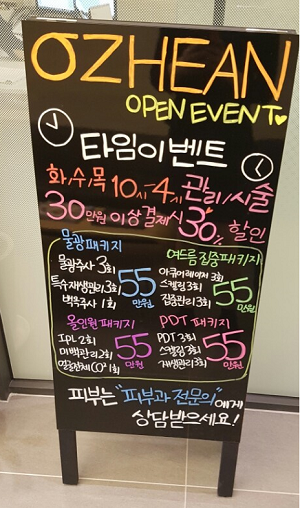 OZHEAN
OPEN EVENT
타임이벤트
화/수/목 10시-4시 관리/시술
30만원 이상결제시 30% 할인
물광패키지
물광주사 3회
특수재생관리3회
백옥주사 1회
55만원
여드름집중패키지
아쿠어레이저3회
스켈링3회
집중관리3회
55만원
올인원패키지
IPL 2회
미백관리2회
55만원
PDT 패키지
PDT 3회
스켈링3회
재생관리3회
55만원
피부는 "피부과 전문의"에게
상담받으세요!